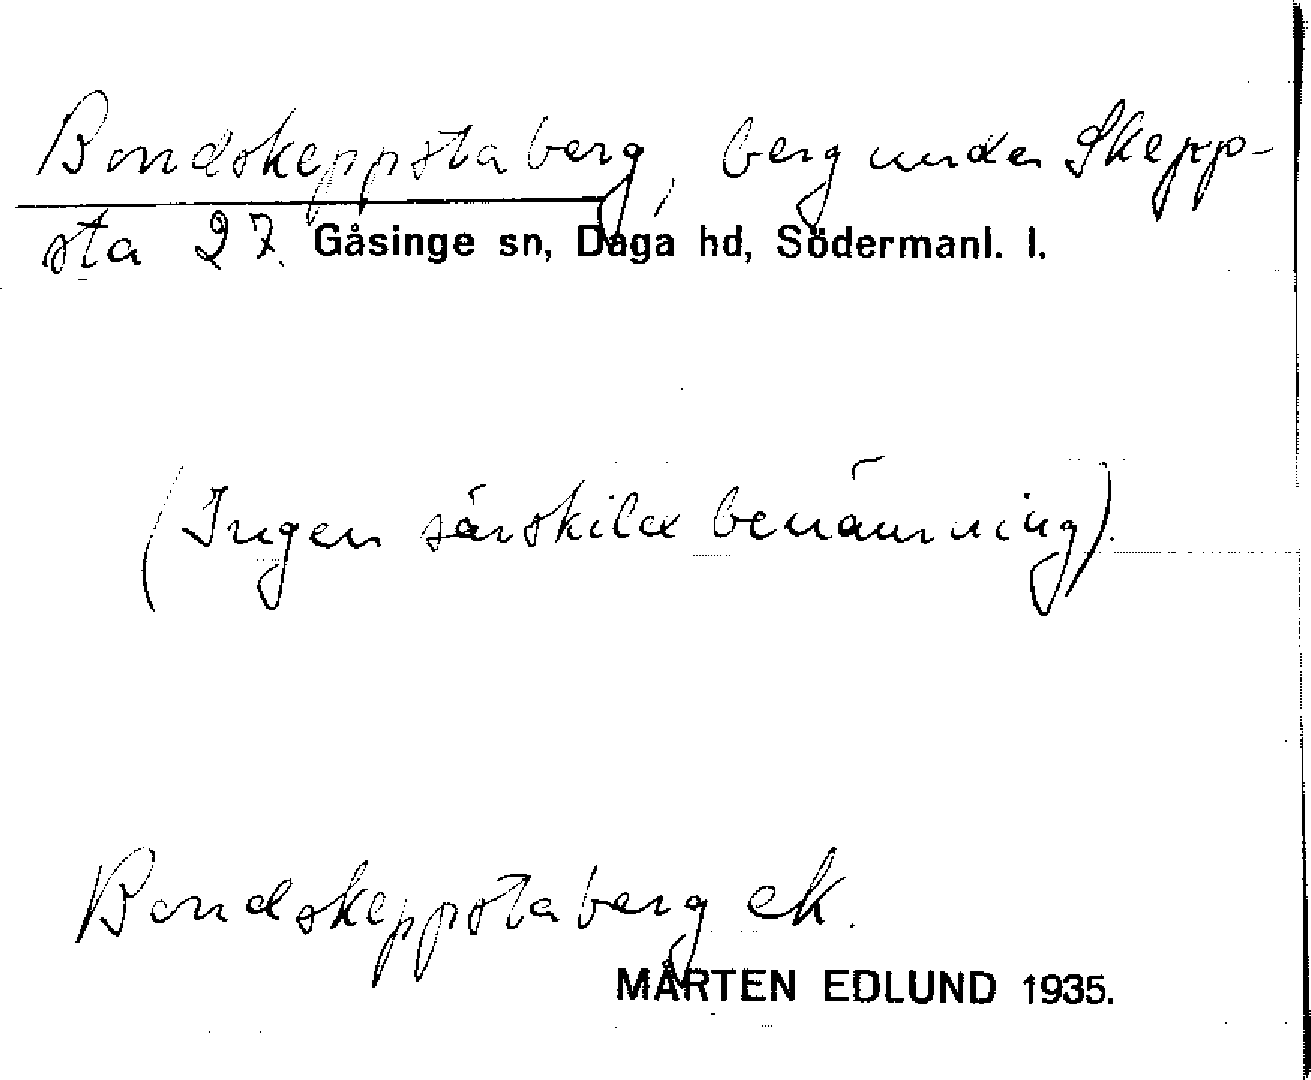 Bondskeppstaberg, berg under Skepp-
sta 27. Gåsinge sn, Daga hd, Södermanl. l.
(Ingen särskild benämning).
Bondskeppstaberg ek.
MÅRTEN EDLUND 1935.